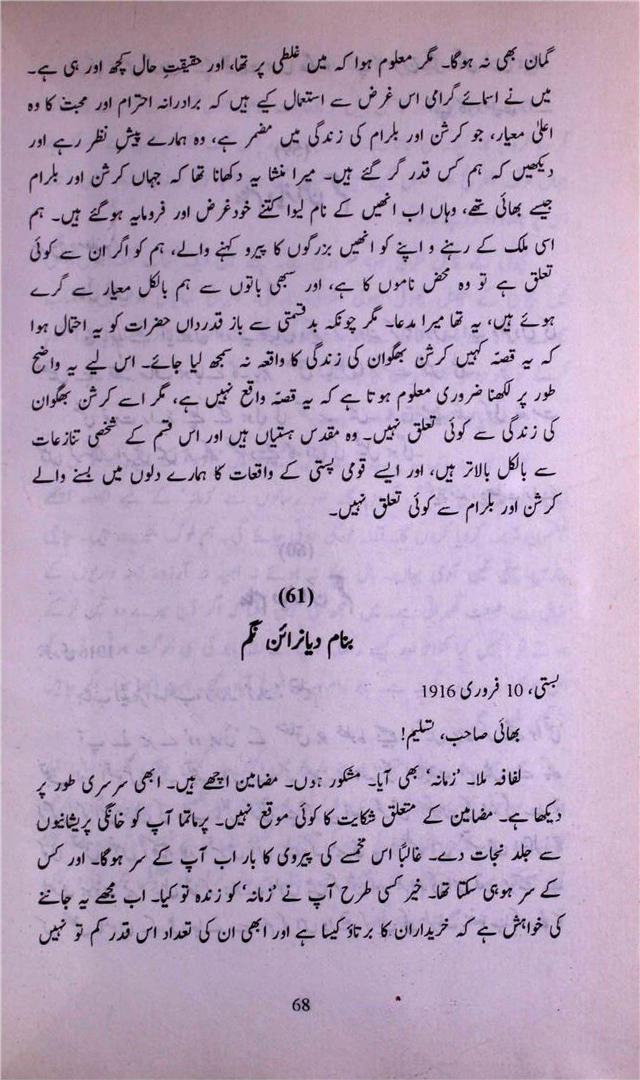 گمان بھی نہ ہوگا۔ مگر معلوم ہوا کہ میں غلطی پر تھا، اور حقیقتِ حال کچھ اور ہی ہے۔
میں نے اسمائے گرامی اس غرض سے استعمال کیے ہیں کہ برادرانہ احترام اور محبت کا وہ
اعلیٰ معیار، جو کرشن اور بلرام کی زندگی میں مضمر ہے، وہ ہمارے پیشِ نظر رہے اور
دیکھیں کہ ہم کس قدر گر گئے ہیں۔ میرا منشا یہ دکھانا تھا کہ جہاں کرشن اور بلرام
جیسے بھائی تھے، وہاں اب انھیں کے نام لیوا کتنے خودغرض اور فرومایہ ہوگئے ہیں۔ ہم
اسی ملک کے رہنے و اپنے کو انھیں بزرگوں کا پیرو کہنے والے، ہم کو اگر ان سے کوئی
تعلق ہے تو وہ محض ناموں کا ہے، اور سبھی باتوں سے ہم بالکل معیار سے گرے
ہوئے ہیں، یہ تھا میرا مدعا۔ مگر چونکہ بدقسمتی سے باز قدرداں حضرات کو یہ احتمال ہوا
کہ یہ قصّہ کہیں کرشن بھگوان کی زندگی کا واقعہ نہ سمجھ لیا جائے۔ اس لیے یہ واضح
طور پر لکھنا ضروری معلوم ہوتا ہے کہ یہ قصّہ واقع نہیں ہے، مگر اسے کرشن بھگوان
کی زندگی سے کوئی تعلق نہیں۔ وہ مقدس ہستیاں ہیں اور اس قسم کے شخصی تنازعات
سے بالکل بالاتر ہیں، اور ایسے قومی پستی کے واقعات کا ہمارے دلوں میں بسنے والے
کرشن اور بلرام سے کوئی تعلق نہیں۔
(61)
بنام دیانرائن نگم
بستی، 10 فروری 1916
بھائی صاحب، تسلیم!
لفافہ ملا۔ ’زمانہ‘ بھی آیا۔ مشکور ہوں۔ مضامین اچھے ہیں۔ ابھی سرسری طور پر
دیکھا ہے۔ مضامین کے متعلق شکایت کا کوئی موقع نہیں۔ پرماتما آپ کو خانگی پریشانیوں
سے جلد نجات دے۔ غالباً اس مخمسے کی پیروی کا بار اب آپ کے سر ہوگا۔ اور کس
کے سر ہو ہی سکتا تھا۔ خیر کسی طرح آپ نے ’زمانہ‘ کو زندہ تو کیا۔ اب مجھے یہ جاننے
کی خواہش ہے کہ خریداران کا برتاؤ کیسا ہے اور ابھی ان کی تعداد اس قدر کم تو نہیں
68